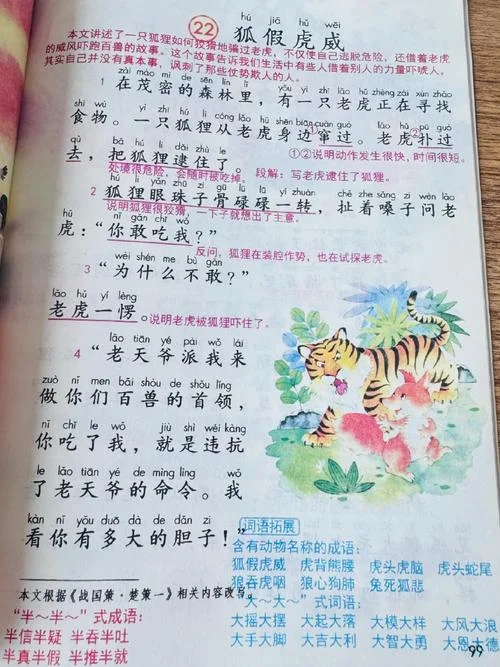 hú jiǎ hǔ wēi
22 狐假虎威
本文讲述了一只狐狸如何狡猾地骗过老虎,不仅使自己逃脱危险,还借着老虎
的威风吓跑百兽的故事。这个故事告诉我们生活中有些人借着别人的力量吓唬人,
其实自己并没有真本事,讽刺了那些仗势欺人的人。
zài mào mì de sēn lín lǐ yǒu yì zhī lǎo hǔ zhèng zài xún zhǎo
1 在茂密的森林里,有一只老虎正在寻找
shí wù yì zhī hú li cóng lǎo hǔ shēn biān cuàn guò lǎo hǔ pū guò
食物。一只狐狸从老虎身边窜过。老虎扑过
① ②
qù bǎ hú li dǎi zhù le
去,把狐狸逮住了。
①②说明动作发生很快,时间很短。
处境很危险,会随时被吃掉。 段解:写老虎逮住了狐狸。
hú li yǎn zhū zi gū lù lù yì zhuàn chě zhe sǎng zi wèn lǎo
2 狐狸眼珠子骨碌碌一转,扯着嗓子问老
说明狐狸很狡猾,一下子就想出了主意。
hǔ nǐ gǎn chī wǒ
虎:“你敢吃我?”
反问,狐狸在装腔作势,也在试探老虎。
wèi shén me bù gǎn
3 “为什么不敢?”
lǎo hǔ yí lèng
老虎一愣。说明老虎被狐狸吓住了。
lǎo tiān yé pài wǒ lái
4 “老天爷派我来
zuò nǐ men bǎi shòu de shǒu lǐng
做你们百兽的首领,
nǐ chī le wǒ jiù shì wéi kàng
你吃了我,就是违抗
le lǎo tiān yé de mìng lìng wǒ
了老天爷的命令。我
kàn nǐ yǒu duō dà de dǎn zi
看你有多大的胆子!”
本文根据《战国策·楚策一》相关内容改写。
“半~半~”式成语:
半信半疑 半吞半吐
半真半假 半推半就
词语拓展
含有动物名称的成语:
狐假虎威 虎背熊腰 虎头虎脑 虎头蛇尾
狼吞虎咽 狼心狗肺 兔死狐悲
“大~大~”式词语:
大摇大摆 大起大落 大模大样 大风大浪
大手大脚 大吉大利 大智大勇 大恩大德
99